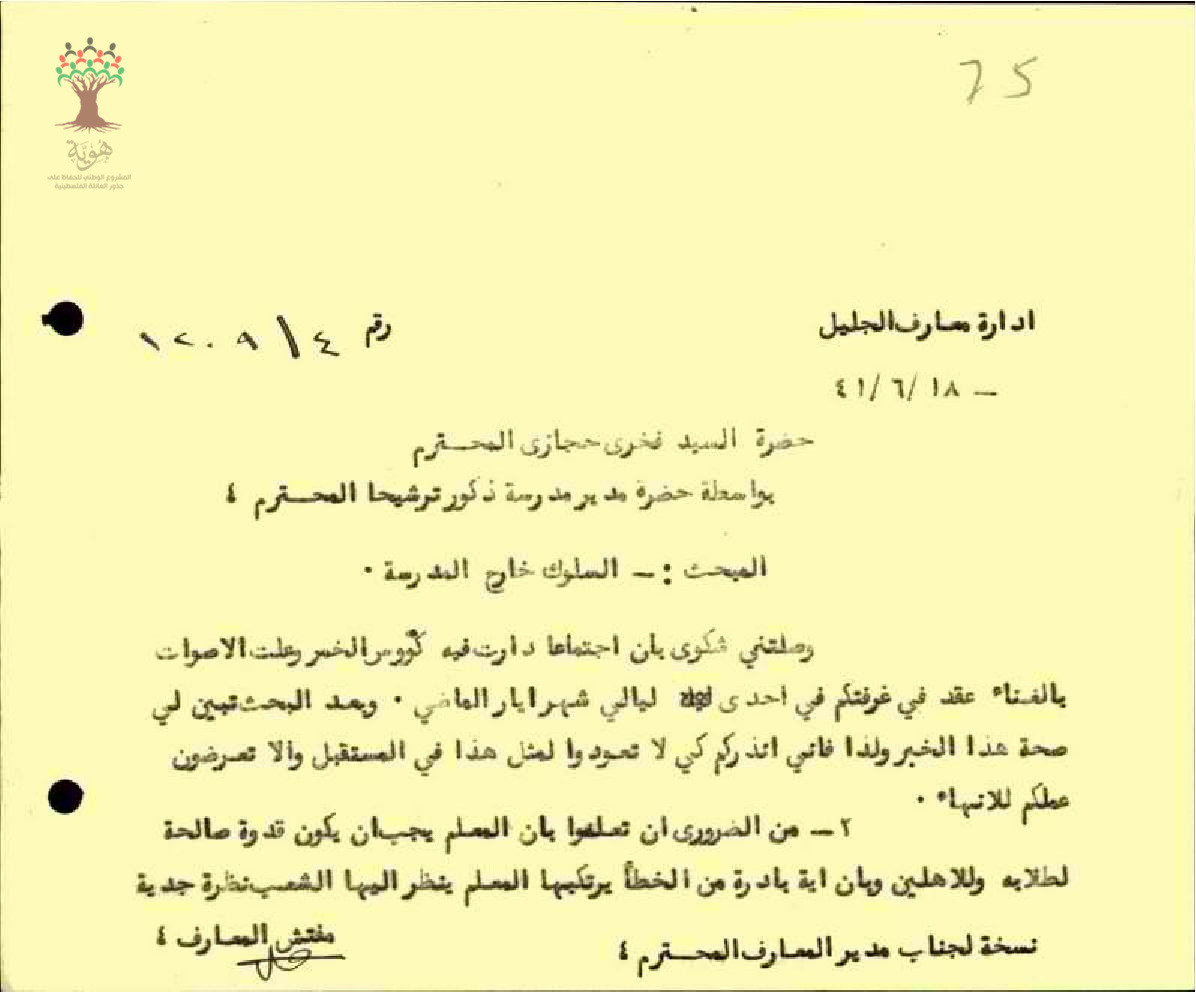 75
هُوِيَّة
المشروع الوطني للحفاظ على
جذور العائلة الفلسطينية
ادارة معارف الجليل
رقم ٤\١٢٠٩
ــ ١٨ /٦ /٤١
حضرة السيد فخرى حجازى المحــترم
بواسطة حضرة مدير مدرسة ذكور ترشيحا المحــترم ٤
المبحث :ــ السلوك خارج المدرسة ٠
وصلتني شكوى بان اجتماعا دارت فيه كؤوس الخمر وعلت الاصوات
بالغناء عقد في غرفتكم في احدى ليالي شهر ايار الماضي ٠ وبعد البحث تبين لي
صحة هذا الخبر ولذا فاني انذركم كي لا تعودوا لمثل هذا في المستقبل والا تعرضون
عملكم للانهاء ٠
٢ــ من الضرورى ان تعلموا بان المعلم يجب ان يكون قدوة صالحة
لطلابه وللاهلين وبان اية بادرة من الخطأ يرتكبها المعلم ينظر اليها الشعب نظرة جدية
مفتش المعارف ٤
نسخة لجناب مدير المعارف المحــترم ٤